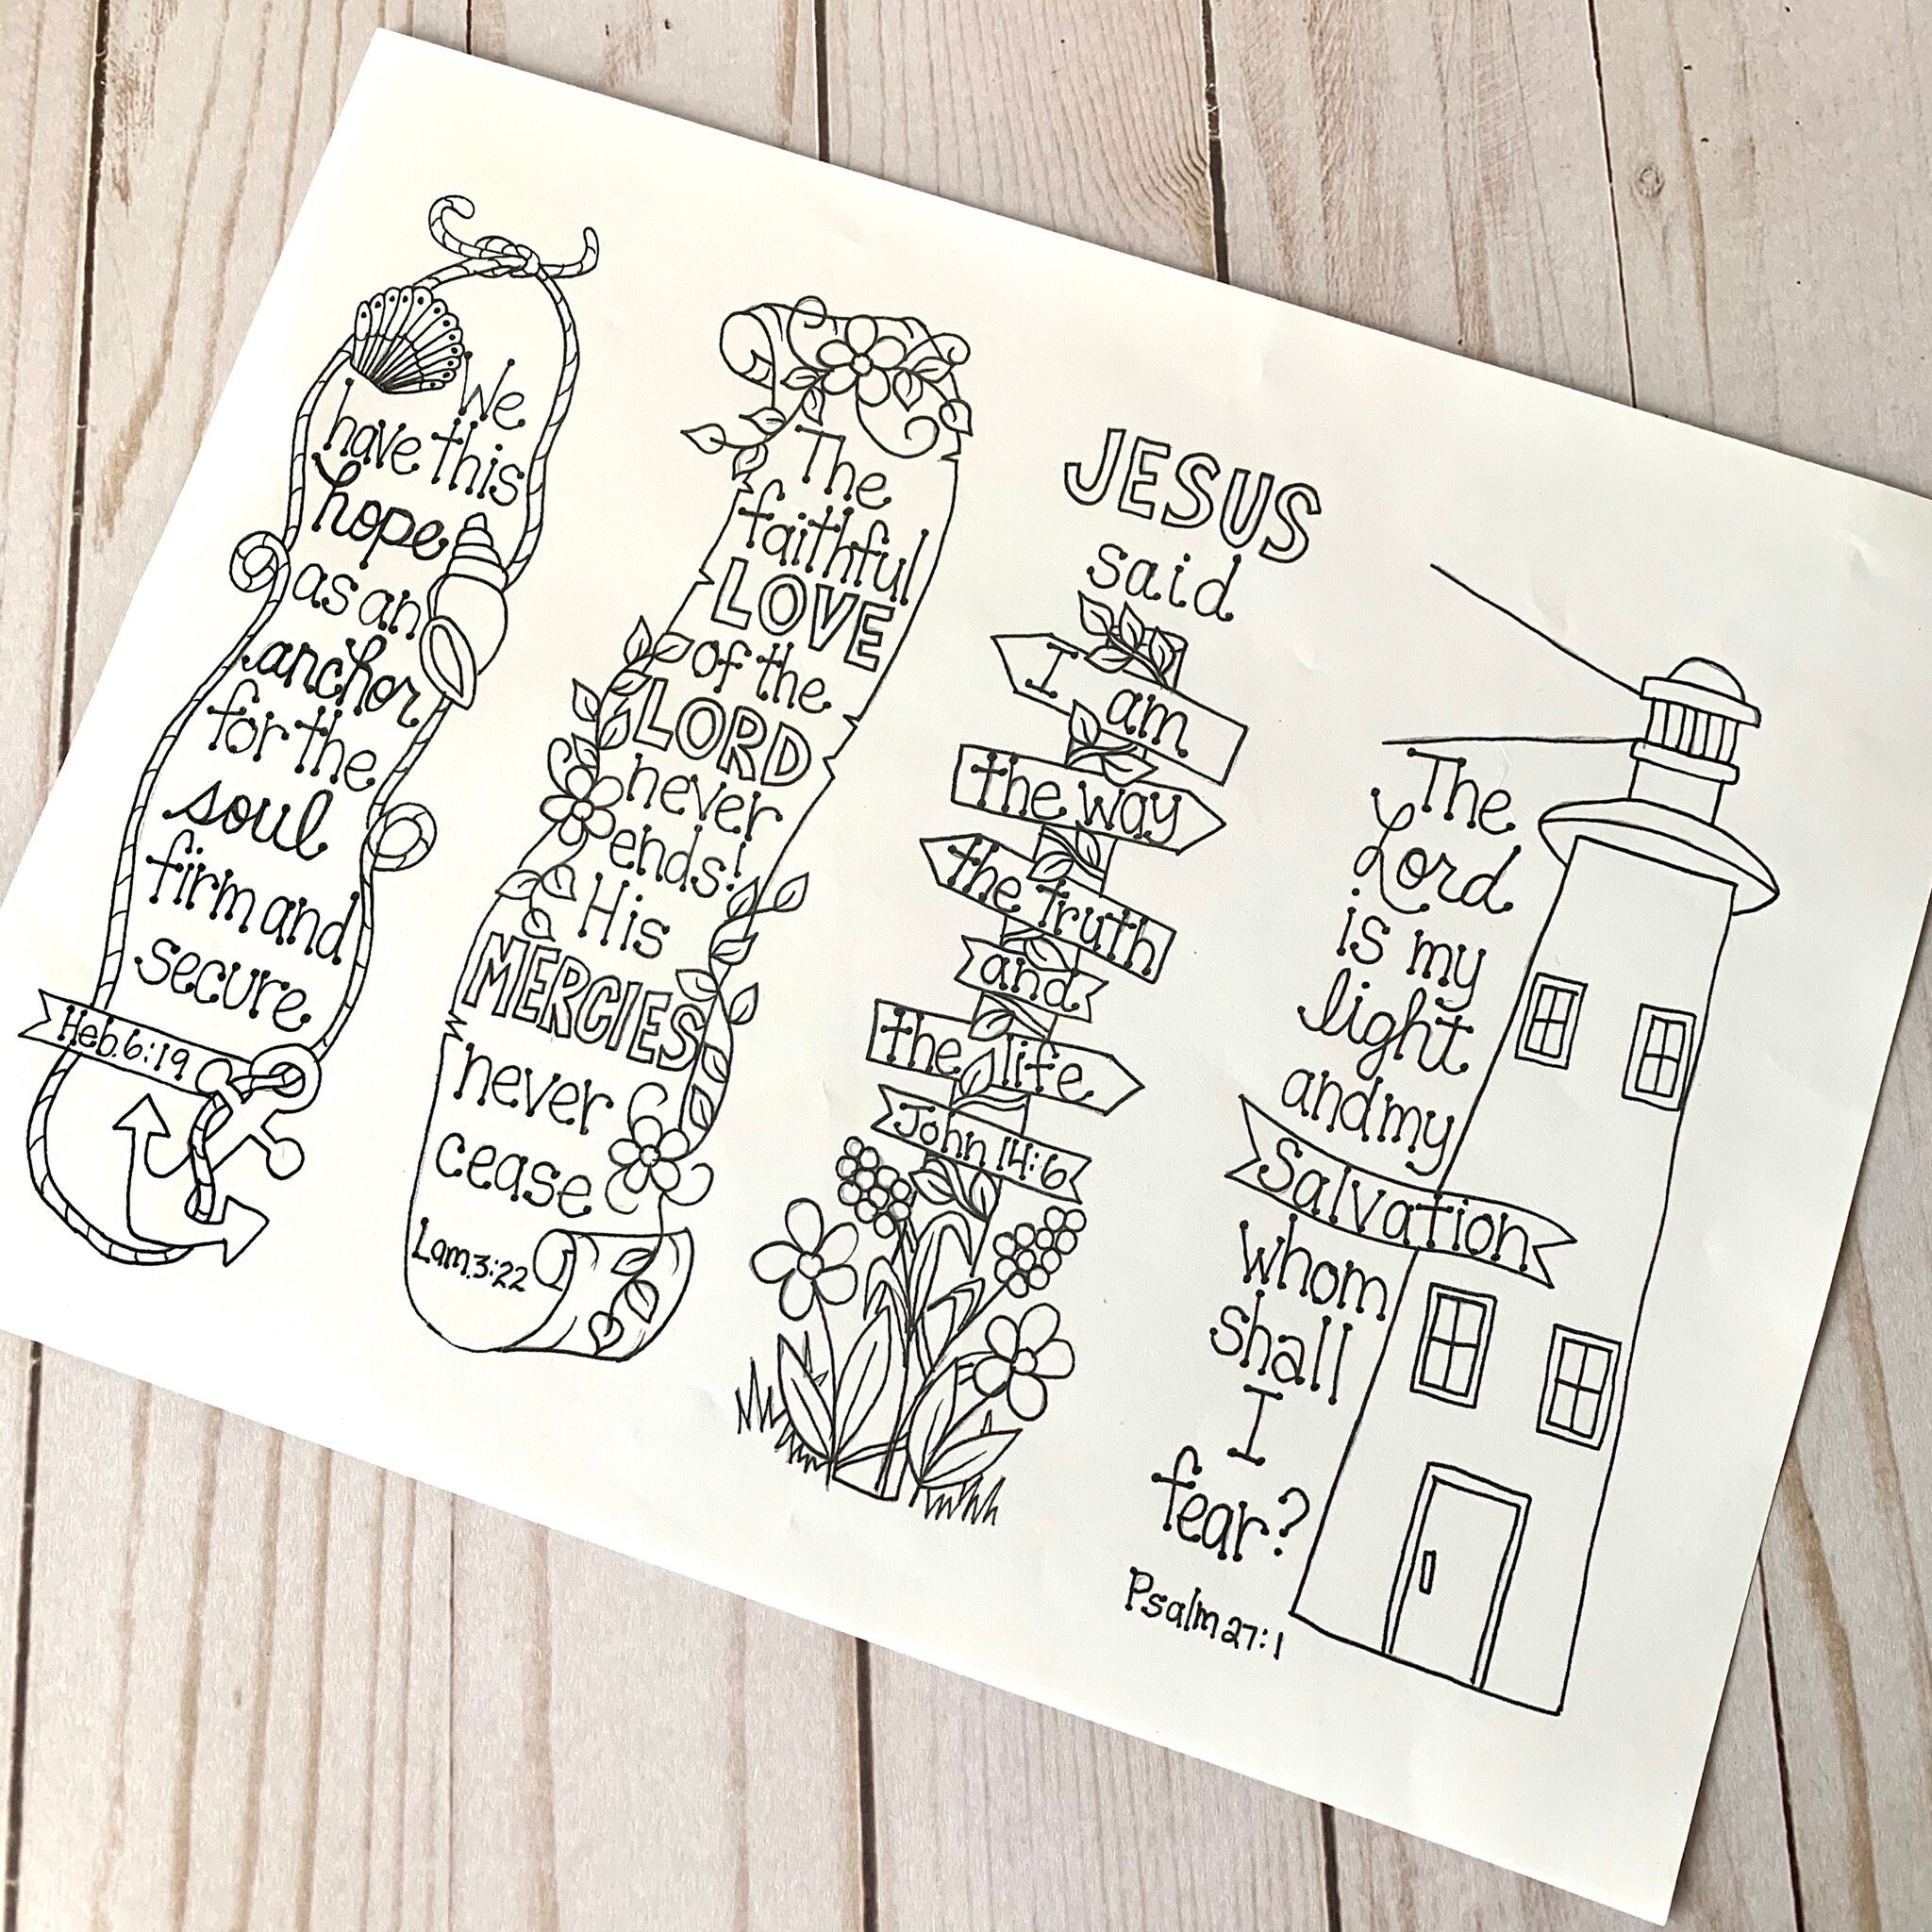 We
have this
hope
as an
anchor
for the
soul
firm and
secure
Heb. 6:19
The
faithful
LOVE
of the
LORD
never
ends!
His
MERCIES
never
cease
Lam. 3:22
JESUS
said
I am
the way
the truth
and
the life
John 14:6
The
Lord
is my
light
and my
Salvation
whom
shall
I
fear?
Psalm 27:1